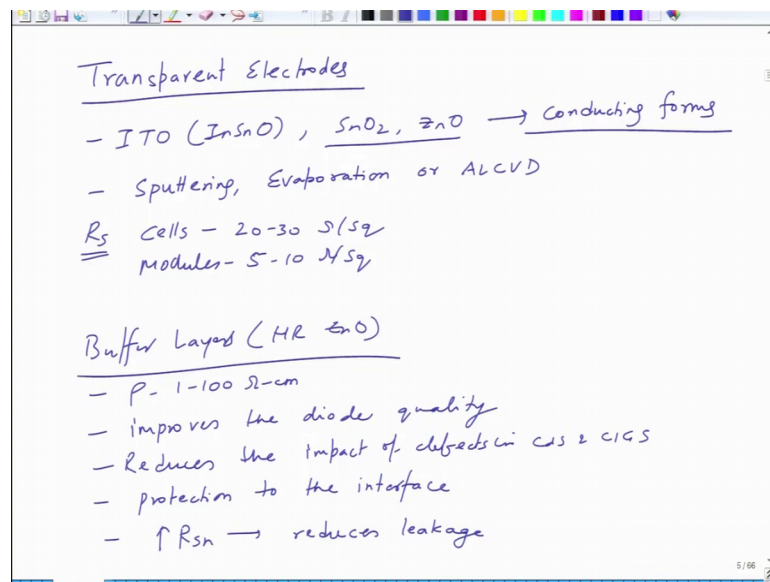 Transparent Electrodes
- ITO (InSnO), SnO2, ZnO → Conducting forms
- Sputtering, Evaporation or ALCVD
Rs Cells - 20-30 Ω/sq
Modules - 5-10 Ω/sq
Buffer Layers (HR ZnO)
- ρ - 1-100 Ω-cm
- improves the diode quality
- Reduces the impact of defects in CdS & CIGS
- protection to the interface
- ↑ Rsh → reduces leakage
5 / 66